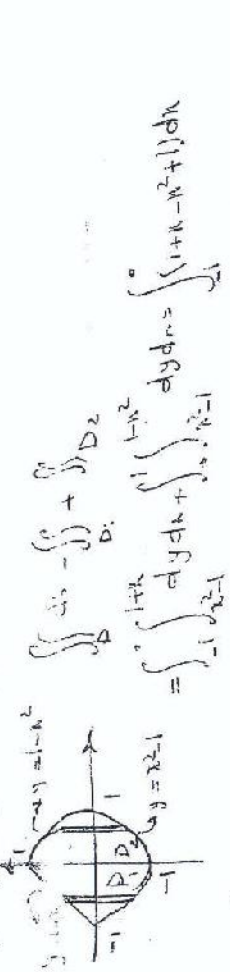 y = 1-x²
y = x²-1
D₁ D₂
-1
1
-1
∬_D = ∬_D₁ + ∬_D₂
= ∫_{-1}^{0} ∫_{x²-1}^{1+x} dy dx + ∫_0^1 ∫_{x²-1}^{1-x²} dy dx = ∫_{-1}^{0} (1+x-x²+1) dx